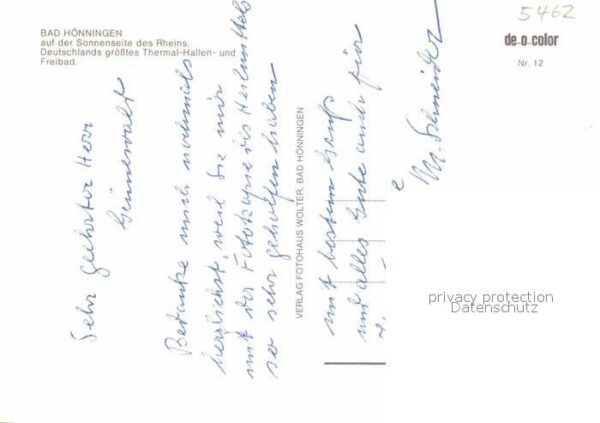 BAD HÖNNINGEN
auf der Sonnenseite des Rheins.
Deutschlands größtes Thermal-Hallen- und
Freibad.
5462
de-o-color
Nr. 12
Sehr geehrter Herr
Bedanke mich nochmals
herzlichst, weil Sie mir
mit der Fotokopie des Heilmittels
so sehr geholfen haben
VERLAG FOTOHAUS WOLTER, BAD HÖNNINGEN
mit bestem Gruß
und alles Gute auch für
M. Schneider
privacy protection
Datenschutz